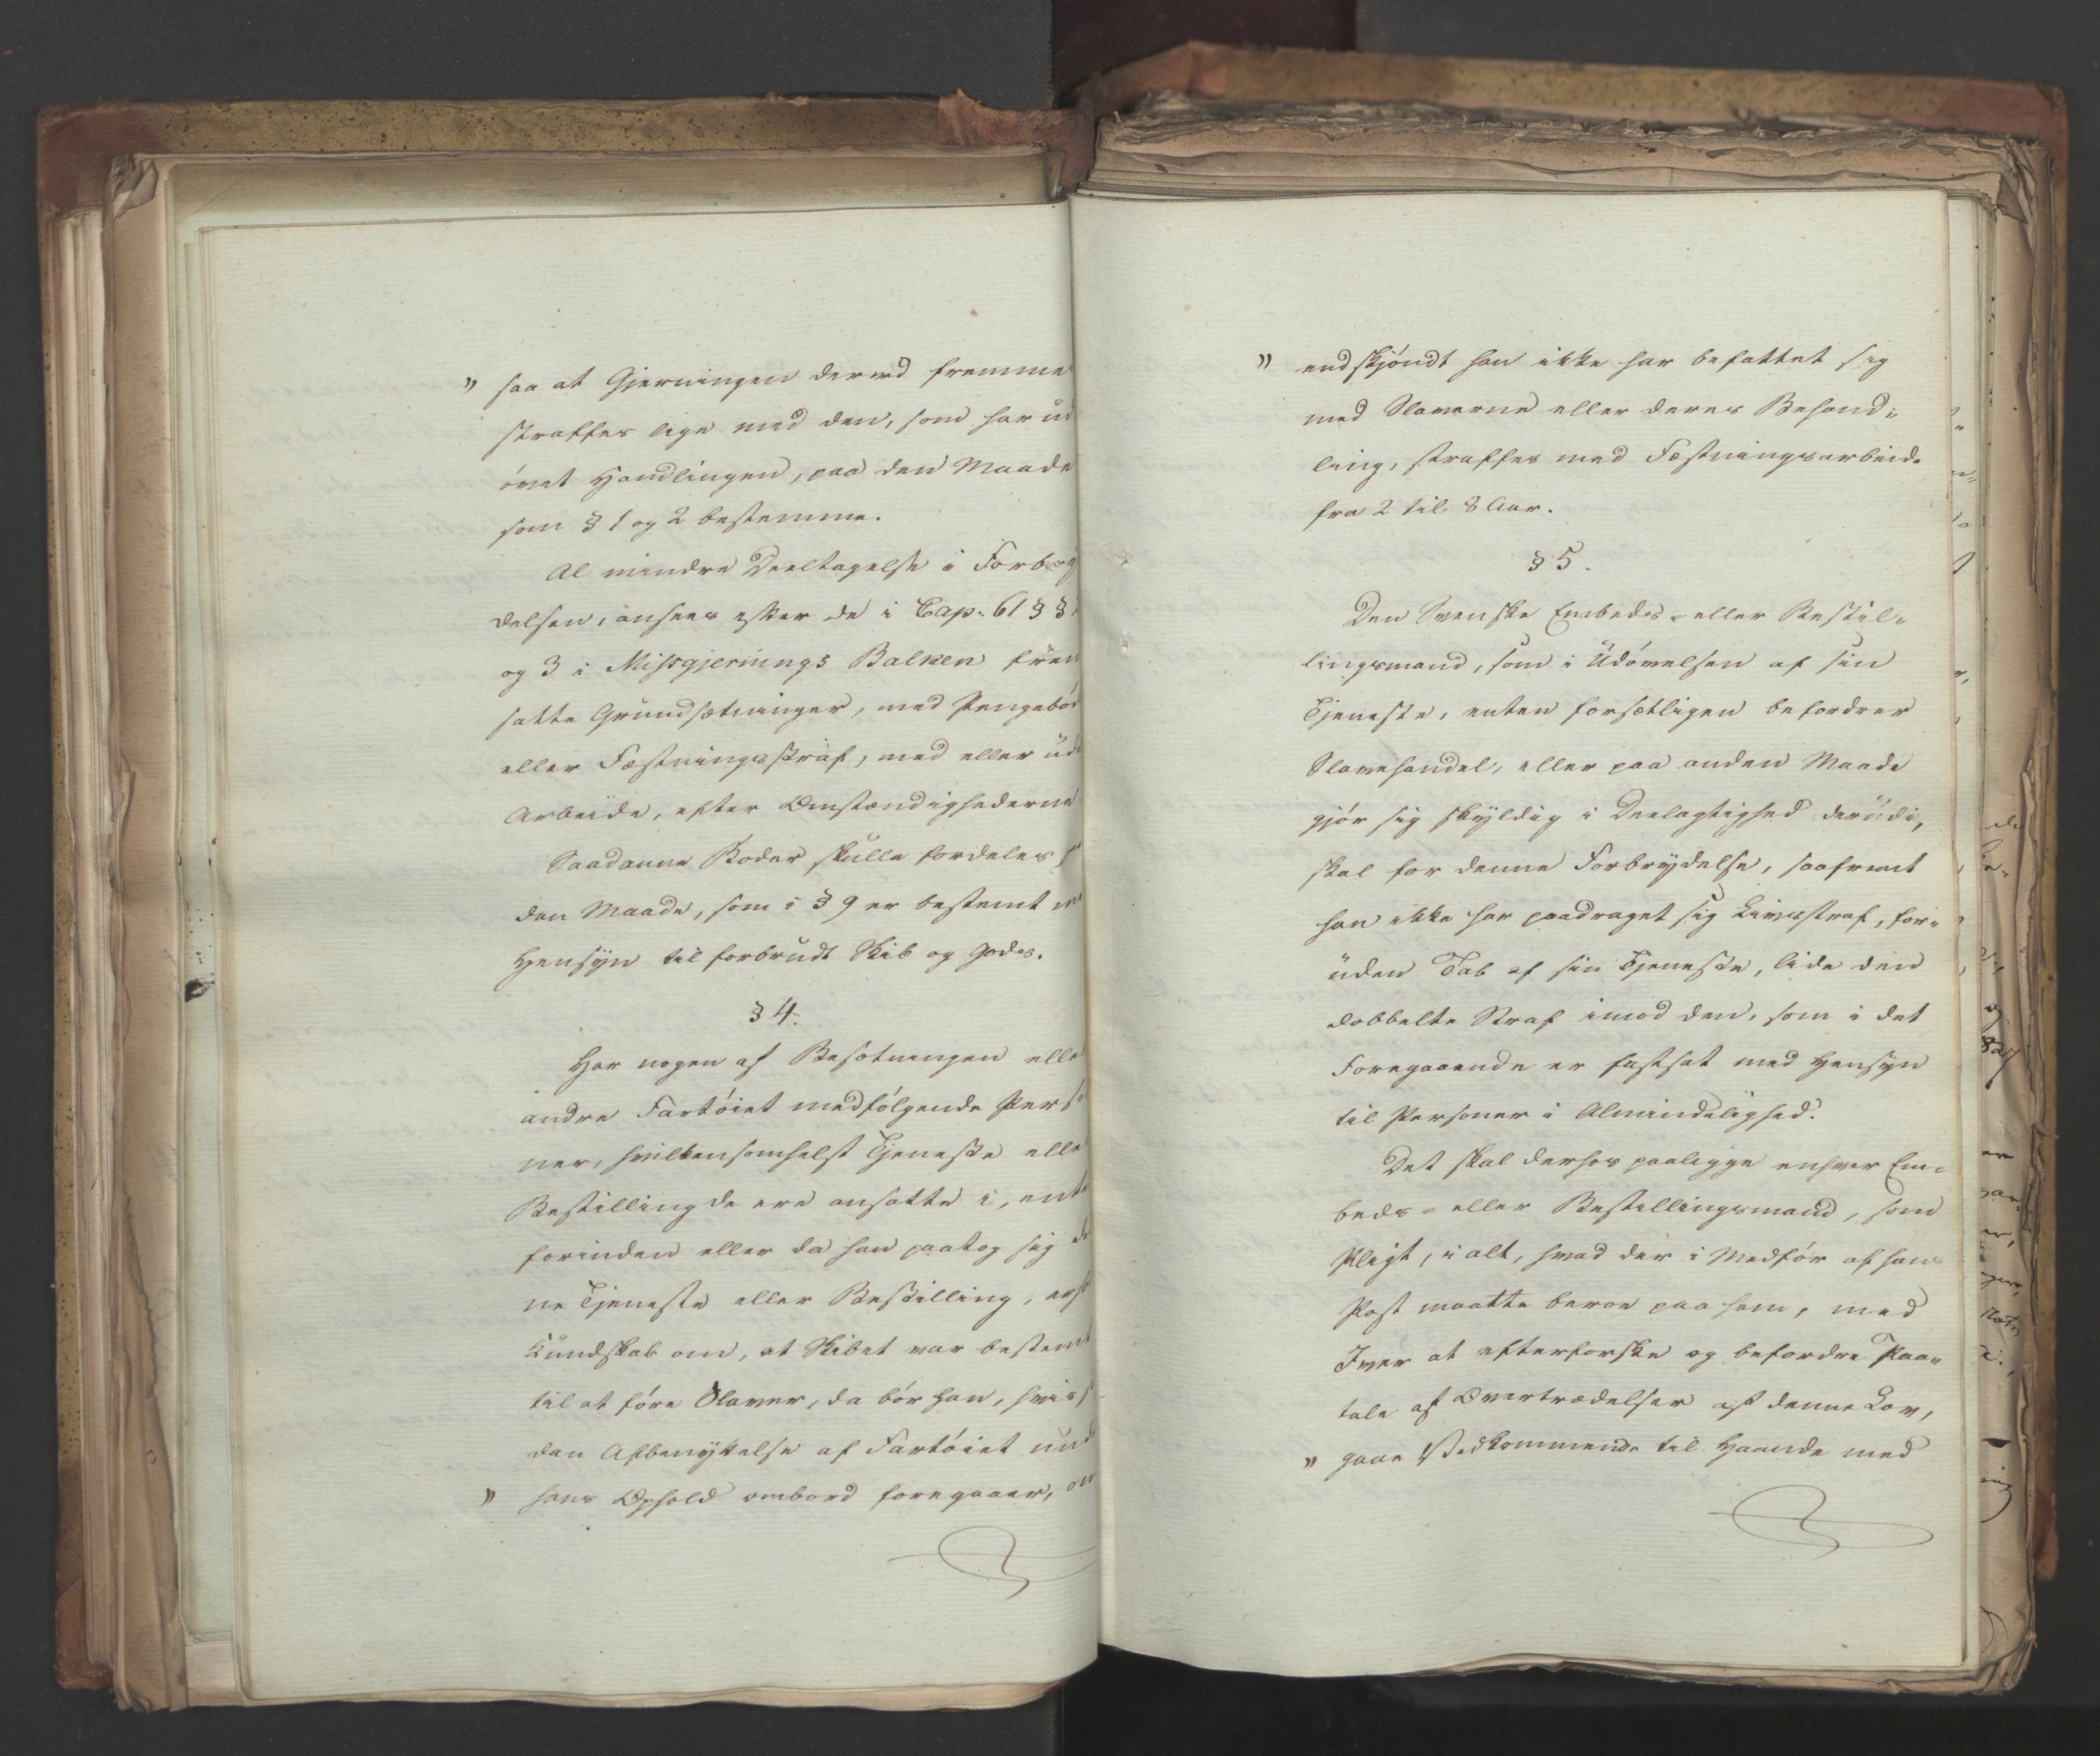 " saa at Gjerningen derved fremme
straffes lige med den, som har ud
øvet Handlingen, paa den Maade
som § 1 og 2 bestemme.
Al mindre Deeltagelse i Forbry
delsen, ansees efter de i Cap. 61 § §
og 3 i Missgjernings Balken frem
satte Grundsætninger, med Pengebød
eller Fæstningsstraf, med eller ude
Arbeide, efter Omstændighederne.
Saadanne Bøder skulle fordeles
den Maade, som i § 9 er bestemt
Hensyn til forbrudt Skib og Gods.
§ 4.
Har nogen af Besætningen elle
andre Fartøiet medfølgende Perso
ner, hvilkensomhelst Tjeneste elle
Bestilling de ere ansatte i, ente
forinden eller da han paatog sig de
ne Tjeneste eller Bestilling, erho
Kundskab om, at Skibet var bestemt
til at føre Slaver, da bør han, hvis s
dan Afbenyttelse af Fartøiet unde
" hans Ophold ombord foregaaer, om
" endskjøndt han ikke har befattet sig
med Slaverne eller deres Behand-
ling, straffes med Fæstningsarbeide
fra 2 til 8 Aar.
§ 5.
Den Svenske Embeds- eller Bestil-
lingsmand, som i Udøvelsen af sin
Tjeneste, enten forsætligen befordrer
Slavehandel, eller paa anden Maade
gjør sig skyldig i Deelagtighed derudi,
skal for denne Forbrydelse, saafremt
han ikke har paadraget sig Livsstraf, for-
uden Tab af sin Tjeneste, lide den
dobbelte Straf imod den, som i det
Foregaaende er fastsat med Hensyn
til Personer i Almindelighed.
Det skal derhos paaligge enhver Em-
beds- eller Bestillingsmand, som
Pligt, i alt, hvad der i Medfør af hans
Post maatte beroe paa ham, med
Iver at efterforske og befordre Paa-
tale af Overtrædelser af denne Lov,
" gaae Vedkommende til Haande med